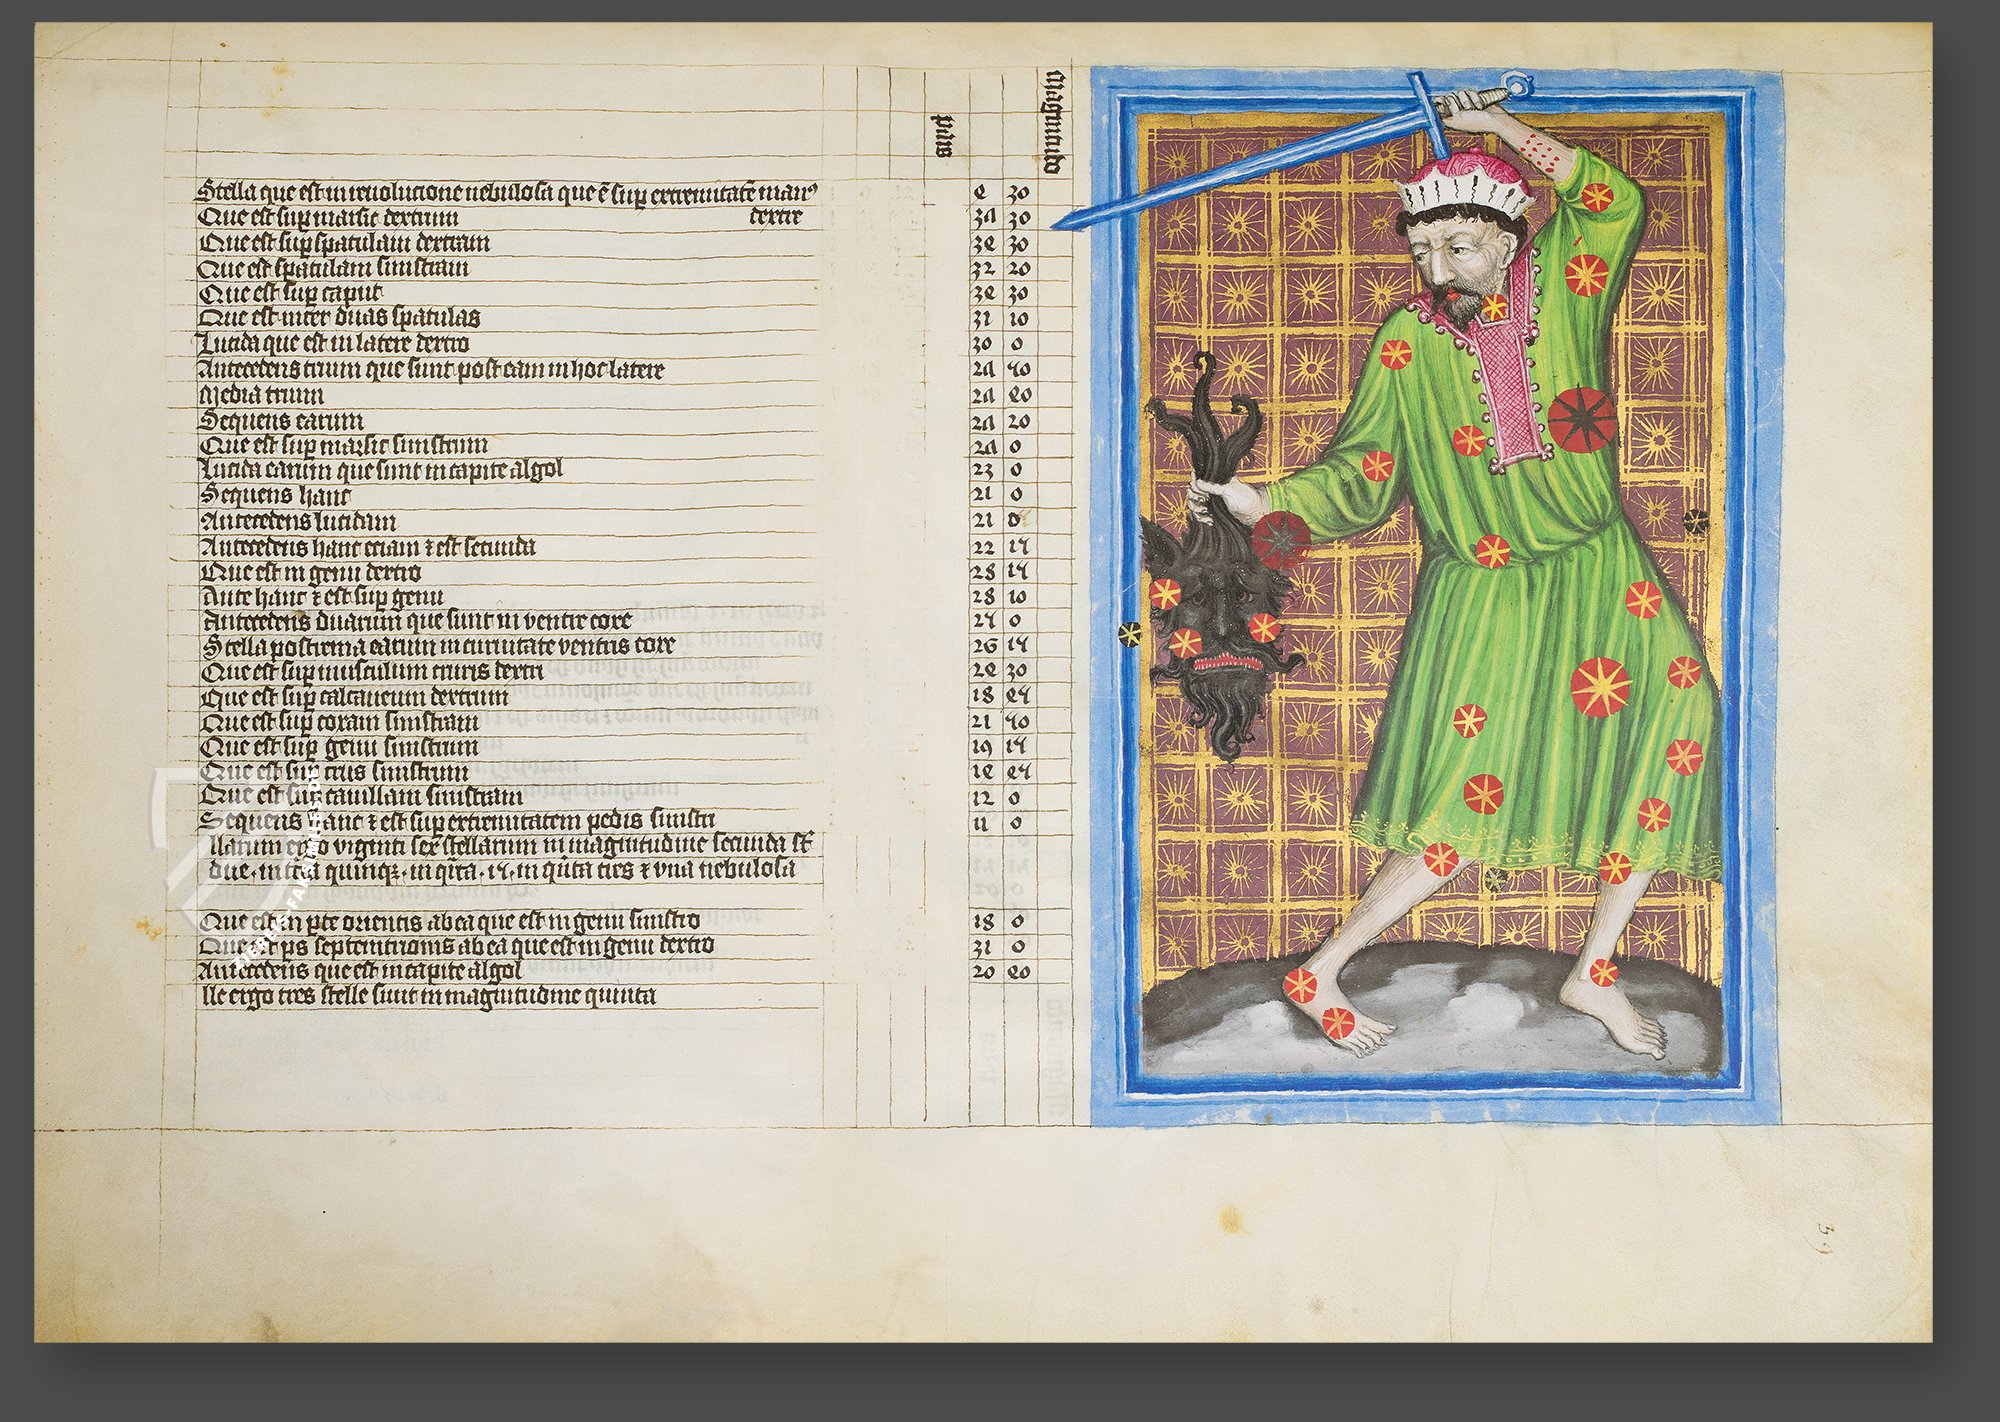 pars
magnitudo
Stella que est in reuolucione nebulosa que ē sup extremitatē man⁹ 2 30
dextre
Que est sup marfic dextrum 3Λ 30
Que est sup spatulam dextram 32 30
Que est spatulam sinistram 32 20
Que est sup caput 32 30
Que est inter duas spatulas 31 10
Lucida que est in latere dextro 30 0
Antecedens trium que sunt post eam in hoc latere 2Λ 40
Media trium 2Λ 20
Sequens earum 2Λ 20
Que est sup marfic sinistrum 2Λ 0
Lucida earum que sunt in capite algol 23 0
Sequens hanc 21 0
Antecedens lucidam 21 0
Antecedens hanc eciam ⁊ est secunda 22 14
Que est in genu dextro 28 14
Ante hanc ⁊ est sup genu 28 10
Antecedens duarum que sunt in ventre coxe 24 0
Stella postrema earum in curuitate ventris coxe 26 14
Que est sup musculum cruris dextri 22 30
Que est sup calcaneum dextrum 18 24
Que est sup coxam sinistram 21 40
Que est sup genu sinistrum 19 14
Que est sup crus sinistrum 12 24
Que est sup cauillam sinistram 12 0
Sequens hanc ⁊ est sup extremitatem pedis sinistri 11 0
llarum ergo viginti sex stellarum in magnitudine secunda sūt
due · in tercia quinqȝ · in q̄rta · 14 · in q̄nta tres ⁊ vna nebulosa
Que est in pte orientis ab ea que est in genu sinistro 18 0
Que est ps septemtrionis ab ea que est in genu dextro 31 0
Antecedens que est in capite algol 20 20
lle ergo tres stelle sunt in magnitudine quinta